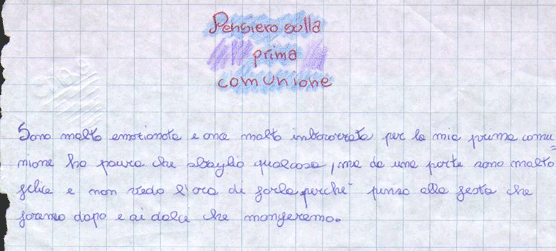 Pensiero sulla
prima
comunione
Sono molto emozionata e ona molto imbarazzata per la mia prima comu=
nione ho paura che sbaglio qualcosa, ma da una parte sono molto
felice e non vedo l'ora di farla perchè penso alla festa che
faremo dopo e ai dolci che mangeremo.